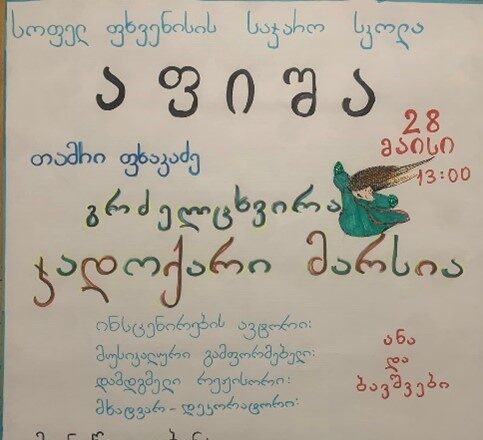 სოფელ ფხვენისის საჯარო სკოლა
აფიშა
28
მაისი
13:00
თამრი ფხაკაძე
გრძელცხვირა
ჯადოქარი მარსია
ინსცენირების ავტორი:
მუსიკალური გამფორმებელი:
დამდგმელი რეჟისორი:
მხატვარ-დეკორატორი:
ანა
და
ბავშვები